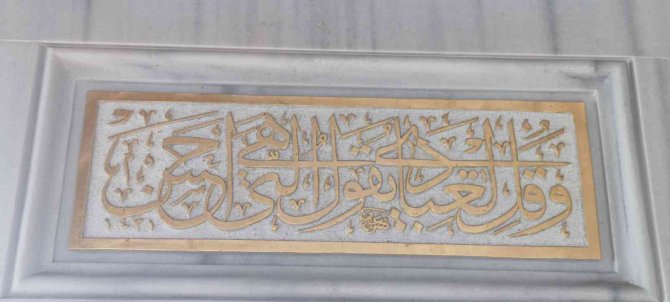 وَقُلْ لِعِبَادِي يَقُولُوا الَّتِي هِيَ أَحْسَنُ
١٤٣١